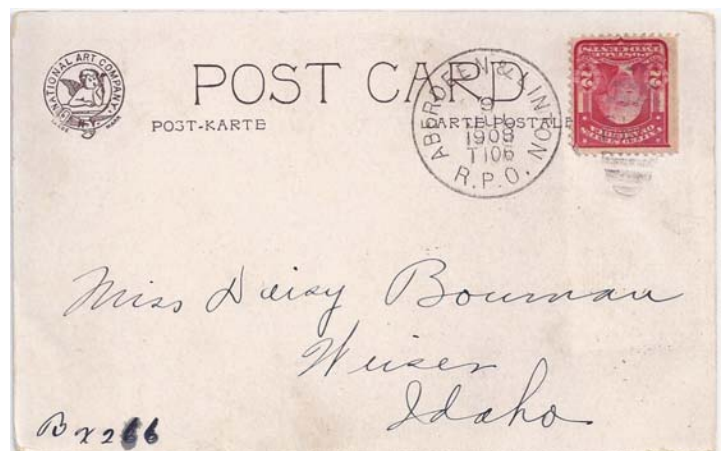 NATIONAL ART COMPANY
N.Y.
TRADE MARK
POST CARD
POST-KARTE
CARTE POSTALE
ABERDEEN & LINTON
9
1908
T106
R.P.O.
2 2
Miss Daisy Bowman
Weiser
Idaho
Bx 266